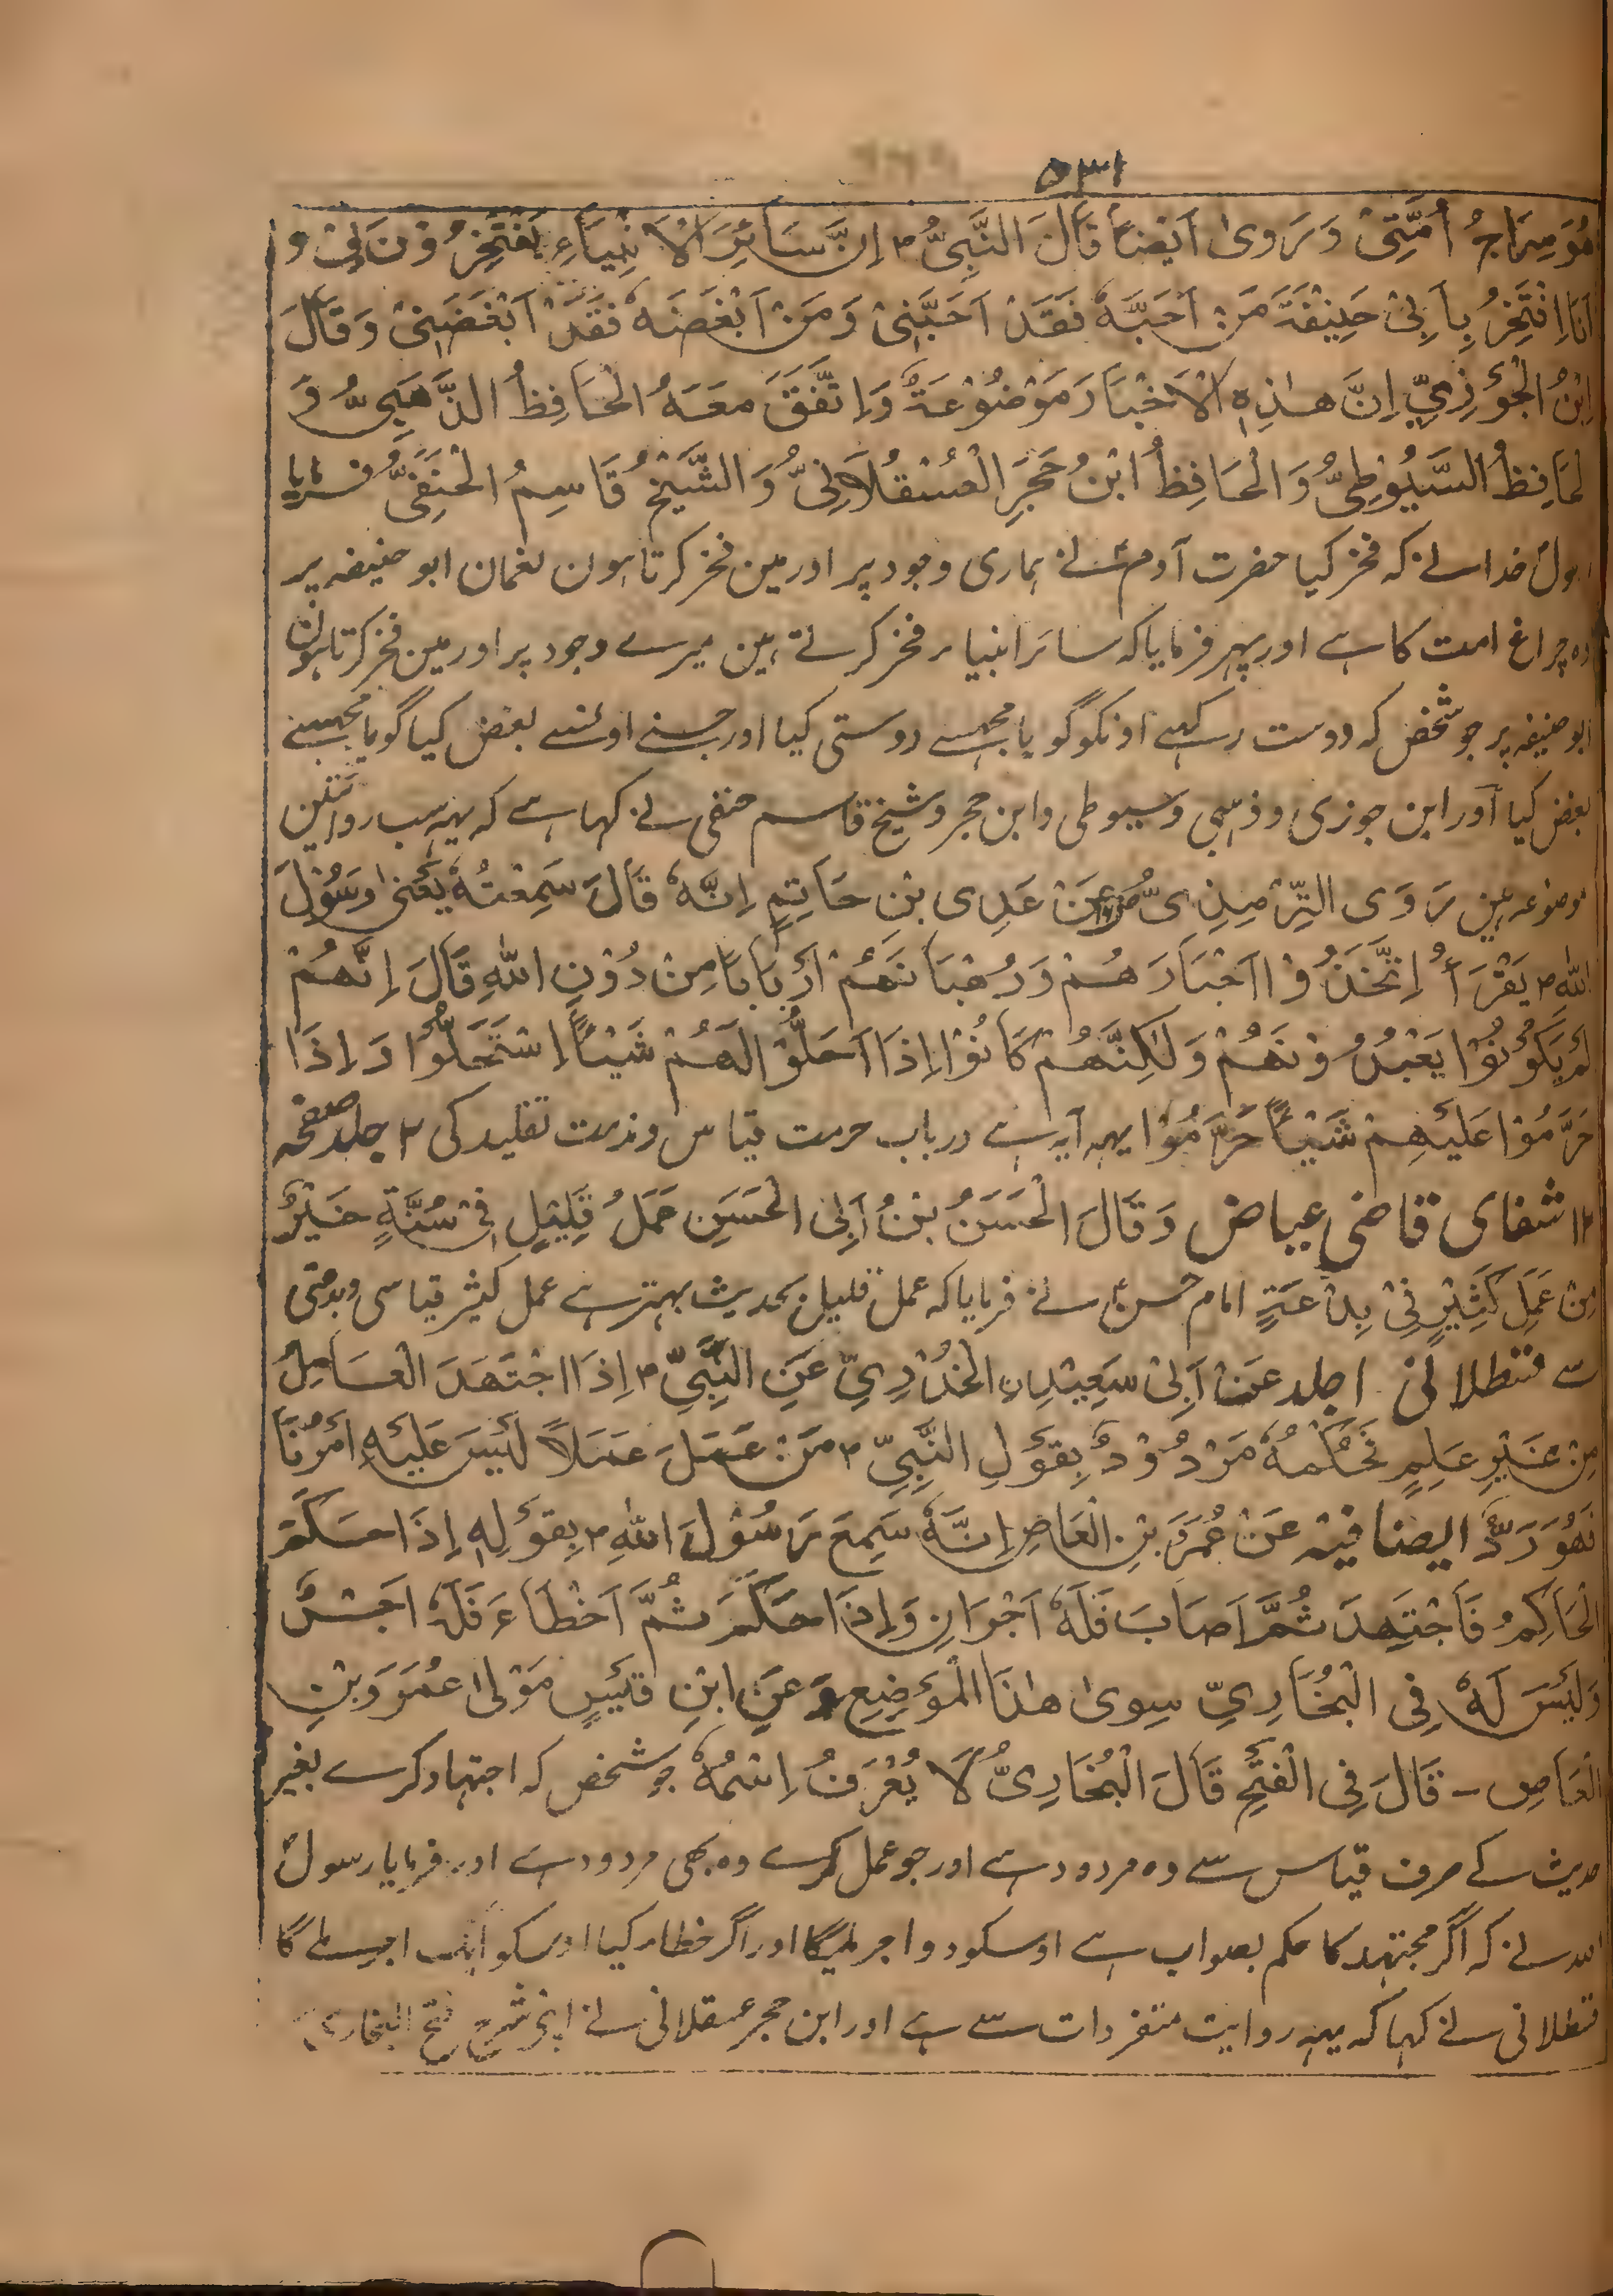 ۵۳۱
هُوَ سِرَاجُ اُمَّتِیْ وَرَویٰ اَیْضًا قَالَ النَّبِیُّ ۳ اِنَّ سَائِرَ الْاَنْبِیَآءِ یَفْتَخِرُوْنَ بِیْ وَ
اَنَا اِفْتَخِرُ بِاَبِیْ حَنِیْفَةَ مَنْ اَحَبَّهٗ فَقَدْ اَحَبَّنِیْ وَمَنْ اَبْغَضَهٗ فَقَدْ اَبْغَضَنِیْ وَقَالَ
اِبْنُ الْجَوْزِیِّ اِنَّ هٰذِهِ الْاَخْبَارَ مَوْضُوْعَةٌ وَاِتَّفَقَ مَعَهُ الْحَافِظُ الذَّهَبِیُّ وَ
لْحَافِظُ السَّیُوْطِیُّ وَالْحَافِظُ ابْنُ حَجَرِ الْعُسْقُلَانِیُّ وَالشَّیْخُ قَاسِمُ الْحَنَفِیُّ فرمایا
رسولؐ خدا نے کہ فخر کیا حضرت آدمؑ نے ہماری وجود پر اور مین فخر کرتا ہون نعمان ابو حنیفہ پر
وہ چراغ امت کا ہے اور پہر فرمایا کہ سائر انبیاء فخر کرتے ہین میرے وجود پر اور مین فخر کرتا ہون
ابو حنیفہ پر جو شخص کہ دوست رکہے اونکو گویا مجہسے دوستی کیا اور جسنے اونسے بغض کیا گویا مجہسے
بغض کیا اور ابن جوزی و ذہبی و سیوطی و ابن حجر و شیخ قاسم حنفی نے کہا ہے کہ یہہ سب روایتین
موضوعہ ہین رَوَی التِّرْمِذِیُّ عَنْ عَدِی بْنِ حَاتِمٍ اِنَّهٗ قَالَ سَمِعْتُهٗ یَعْنِیْ رَسُوْلَ
اللّٰهِ ۳ یَقْرَأُ اِتَّخَذُوْا اَحْبَارَهُمْ وَرُهْبَانَهُمْ اَرْبَابًا مِنْ دُوْنِ اللّٰهِ قَالَ اِنَّهُمْ
لَمْ یَکُوْنُوْا یَعْبُدُوْنَهُمْ وَلٰکِنَّهُمْ کَانُوْا اِذَا اَحَلُّوْا لَهُمْ شَیْئًا اِسْتَحَلُّوْا وَاِذَا
حَرَّمُوْا عَلَیْهِمْ شَیْئًا حَرَّمُوْا یہہ آیہ ہے درباب حرمت قیاس و مذمت تقلید کی ۲ جلد صفحہ
۱۲ شفای قاضی عیاض وَقَالَ الْحَسَنُ بْنُ اَبِی الْحَسَنِ عَمَلُ قَلِیْلٍ فِیْ سُنَّةٍ خَیْرٌ
مِنْ عَمَلٍ کَثِیْرٍ فِیْ بِدْعَةٍ امام حسنؑ نے فرمایا کہ عمل قلیل بحدیث بہتر ہے عمل کثیر قیاسی و بدعتی
سے قسطلانی ۱ جلد عَنْ اَبِیْ سَعِیْدِنِ الْخُدْرِیِّ عَنِ النَّبِیِّ ۳ اِذَا اجْتَهَدَ الْعَامِلُ
مِنْ غَیْرِ عِلْمٍ فَحُکْمُهٗ مَرْدُوْدٌ بِقَوْلِ النَّبِیِّ ۳ مَنْ عَمَلَ عَمَلًا لَیْسَ عَلَیْهِ اَمْرُنَا
فَهُوَ رَدٌّ ایضا فیه عَنْ عُمَرَ بْنِ الْعَاصِ اِنَّهٗ سَمِعَ رَسُوْلَ اللّٰهِ ۳ بِقَوْلِهٖ اِذَا حَکَمَ
الْحَاکِمُ فَاجْتَهَدَ ثُمَّ اَصَابَ فَلَهٗ اَجْرَانِ وَاِذَا حَکَمَ ثُمَّ اَخْطَاءَ فَلَهٗ اَجْرٌ
وَلَیْسَ لَهٗ فِی الْبُخَارِیِّ سِویٰ هٰذَا الْمَوْضِعِ وَ عَنِ ابْنِ قَیْسٍ مَوْلیٰ عُمَرَوَبْنِ
الْعَاصِ – قَالَ فِی الْفَتْحِ قَالَ الْبُخَارِیُّ لَا یُعْرَفُ اِسْمُهٗ جو شخص کہ اجتہاد کرے بغیر
حدیث کے صرف قیاس سے وہ مردود ہے اور جو عمل کرے وہ بھی مردود ہے اور فرمایا رسولؐ
اللہ نے کہ اگر مجتہد کا حکم بصواب ہے اوسکو دو اجر ملیگا اور اگر خطا کیا اوسکو ایک اجر ملے گا
قسطلانی نے کہا کہ یہہ روایت متفردات سے ہے اور ابن حجر عسقلانی نے اپنی شرح فتح البخاری